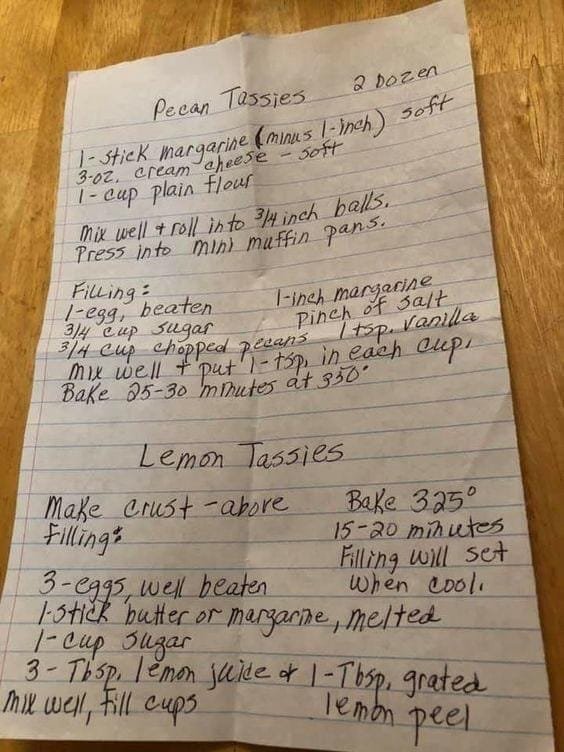 Pecan Tassies 2 Dozen
1-stick margarine (minus 1-inch) soft
3-oz. cream cheese - soft
1-cup plain flour
mix well + roll into 3/4 inch balls.
Press into mini muffin pans.
Filling:
1-egg, beaten 1-inch margarine
3/4 cup sugar Pinch of salt
3/4 cup chopped pecans 1 tsp. vanilla
mix well + put 1-tsp. in each cup.
Bake 25-30 minutes at 350°
Lemon Tassies
Make crust - above Bake 325°
Filling: 15-20 minutes
Filling will set
3-eggs, well beaten when cool.
1-stick butter or margarine, melted
1-cup sugar
3-Tbsp. lemon juice & 1-Tbsp. grated
mix well, fill cups lemon peel